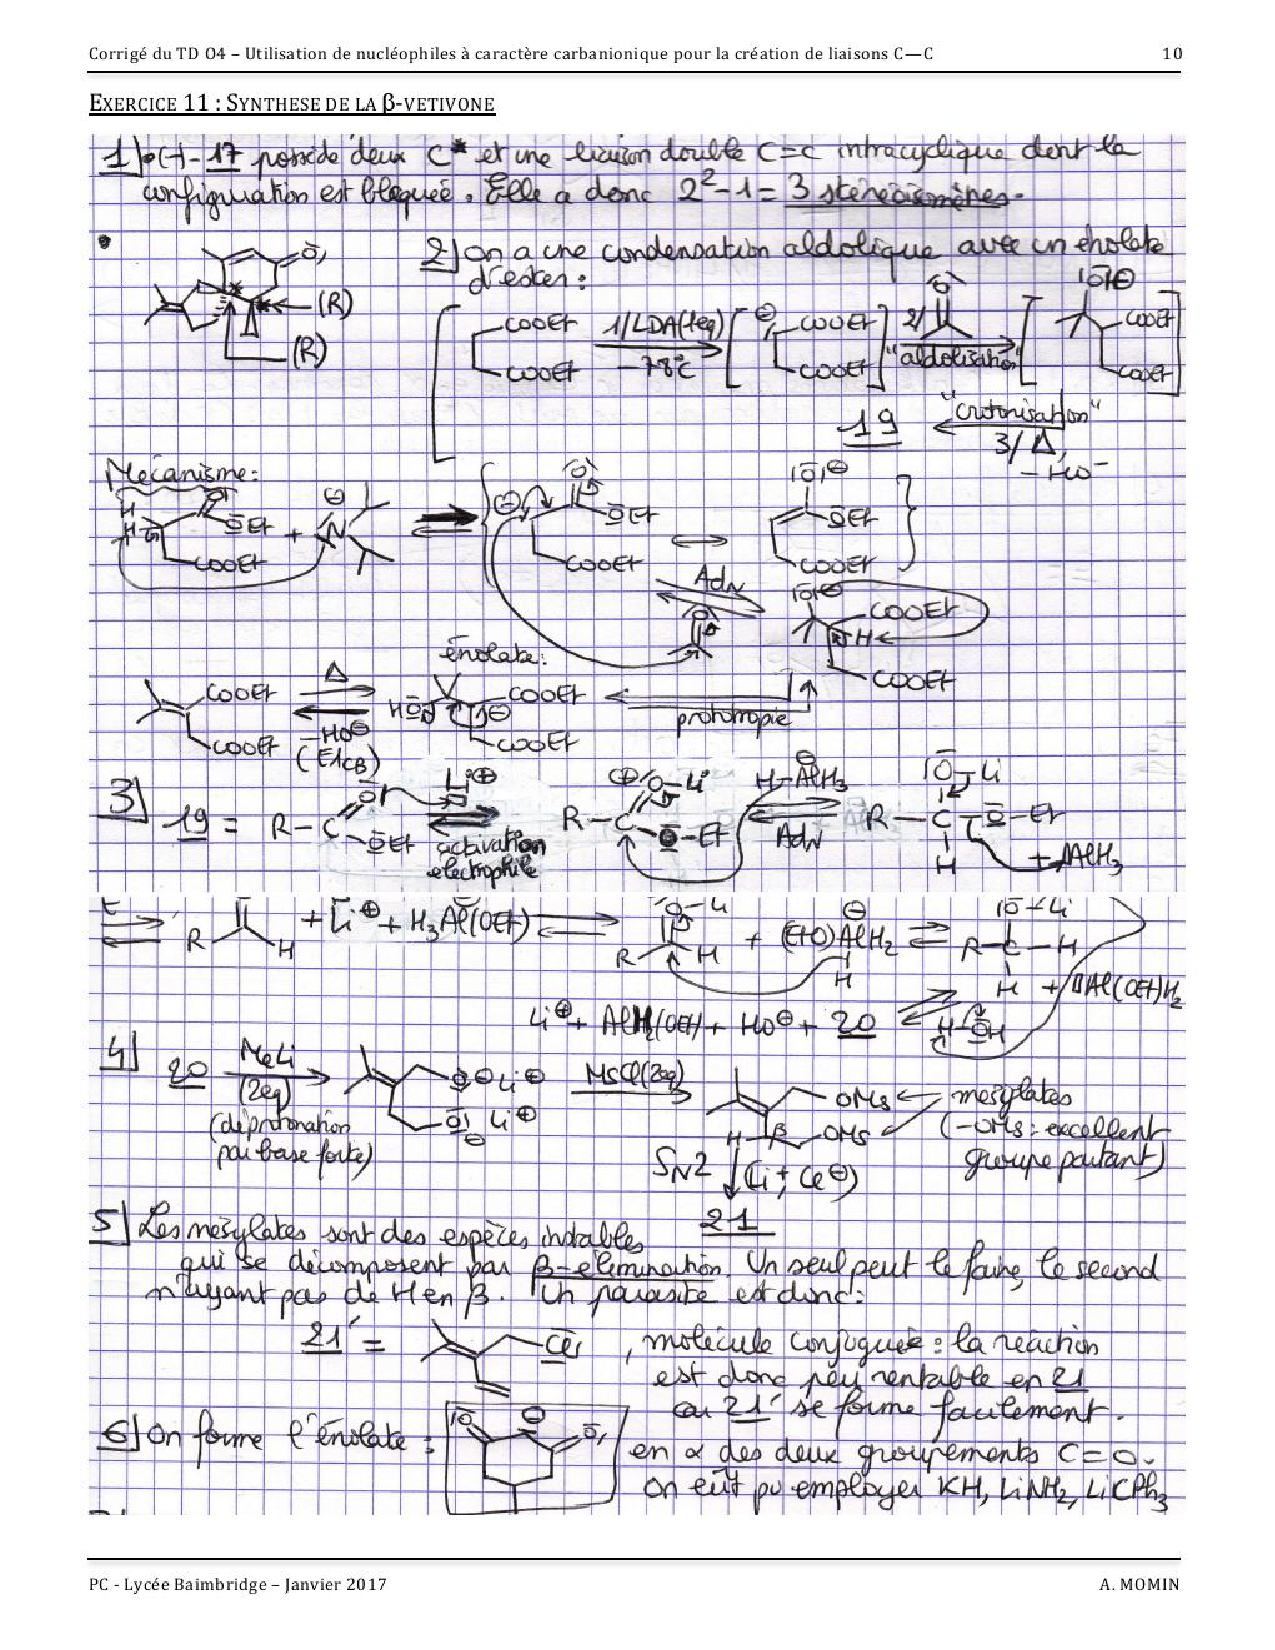 Corrigé du TD 04 – Utilisation de nucléophiles à caractère carbanionique pour la création de liaisons C—C 10
EXERCICE 11 : SYNTHESE DE LA β-VETIVONE
1) •(-)-17 possède deux C* et une liaison double C=C intracyclique dont la
configuration est bloquée. Elle a donc 2²-1 = 3 stéréoisomères.
•
(R)
(R)
2) On a une condensation aldolique avec un énolate
d'ester :
COOEt
COOEt
1/ LDA (1eq)
-78°C
COOEt
COOEt
2/
"aldolisation"
COOEt
COOEt
19
"crotonisation"
3/ Δ,
-HO⁻
Mécanisme :
H
H
OEt
COOEt
+
N
OEt
COOEt
OEt
COOEt
AdN
COOEt
H
COOEt
énolate :
COOEt
COOEt
Δ
-HO⊖
(E1CB)
HO
COOEt
COOEt
prototropie
3) 19 = R-C
OEt
Li⊕
activation
électrophile
R-C
O-Li
O-Et
H-AlH3
AdN
R-C
O-Li
O-Et
H
+ AlH3
R
H
+ Li⊕ + H3Al(OEt)
O-Li
R
H
+ (EtO)AlH2
H
O-Li
R-C-H
H
+ Al(OEt)H2
Li⊕ + AlH2(OEt) + HO⊖ + 20
H-OH
4) 20
MeLi
(2eq)
(déprotonation
par base forte)
O⊖Li⊕
O⊖ Li⊕
MsCl (2eq)
OMs
OMs
H
β
mesylates
(-OMs : excellent
groupe partant)
SN2
(Li⊕, Cl⊖)
21
5) Les mesylates sont des espèces instables
qui se décomposent par β-élimination. Un seul peut le faire, le second
n'ayant pas de H en β. Un parasite est donc :
21' =
Cl
, molécule conjuguée : la réaction
est donc peu rentable en 21
car 21' se forme facilement.
6) On forme l'énolate :
en α des deux groupements C=O.
On eût pu employer KH, LiNH2, LiCPh3
PC - Lycée Baimbridge – Janvier 2017 A. MOMIN